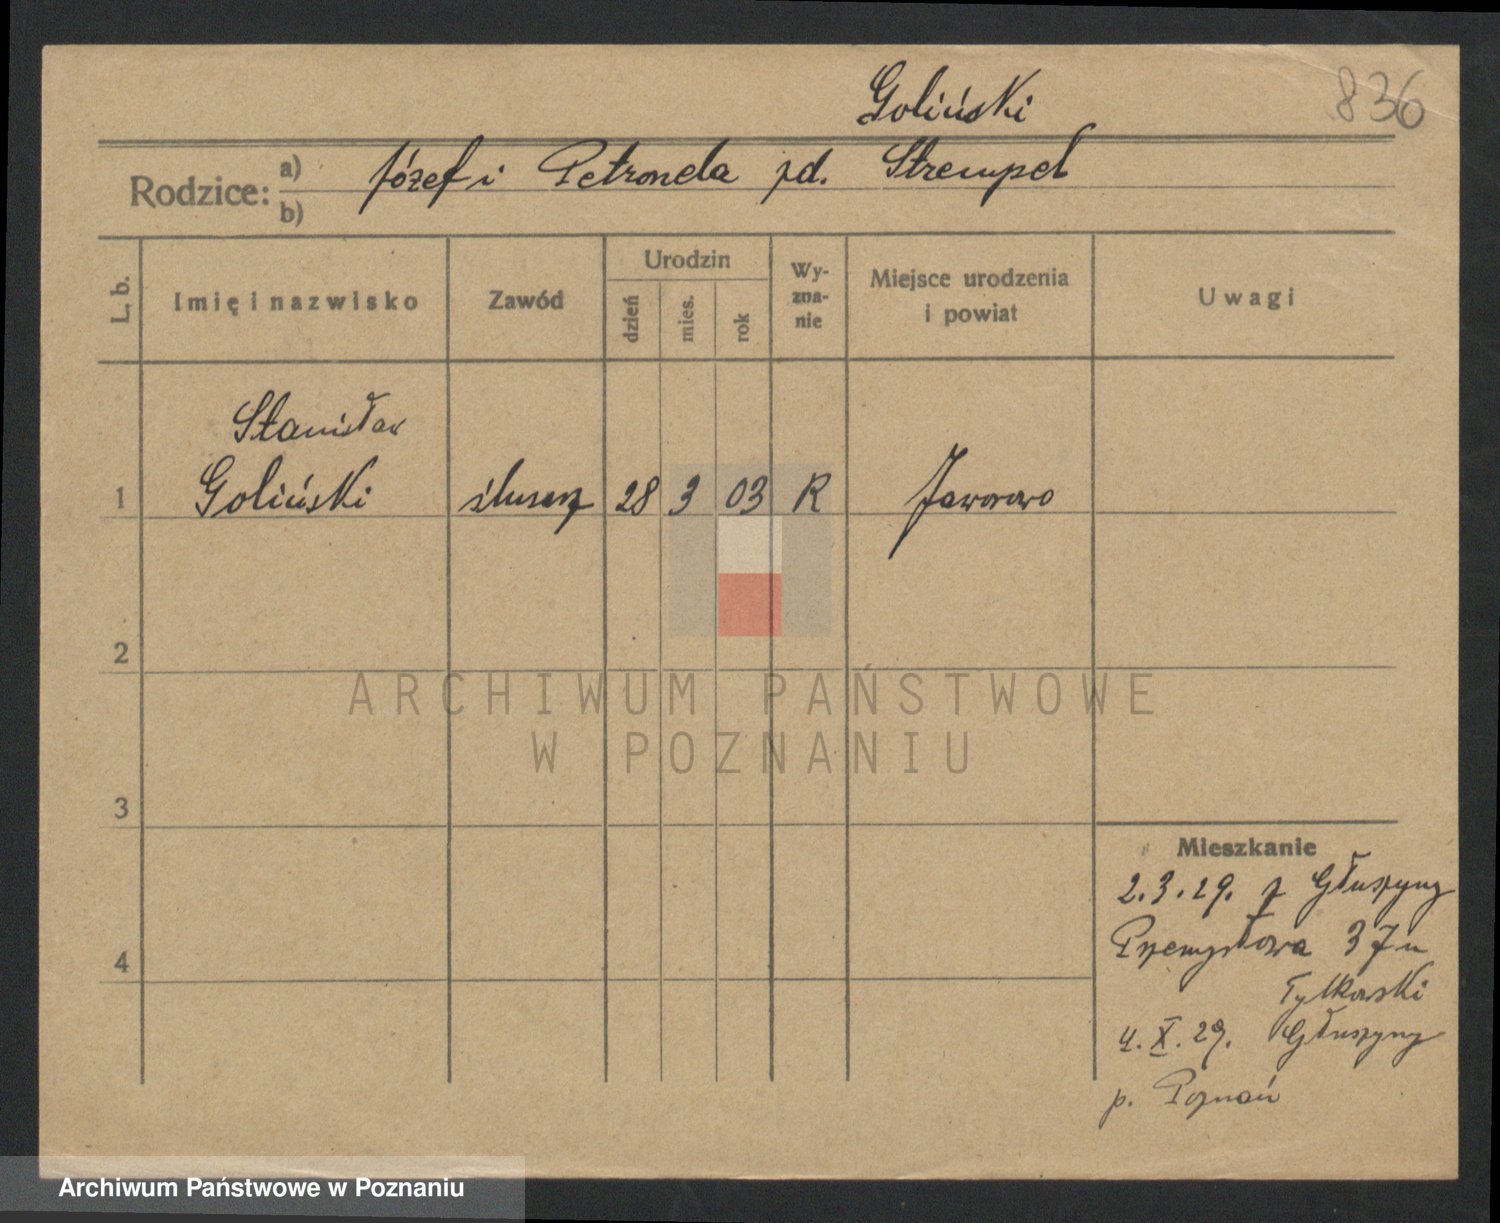 Goliński
836
Rodzice: a) Józef i Petronela zd. Strempel
b)
L. b.
Imię i nazwisko
Zawód
Urodzin
dzień
mies.
rok
Wy-
zna-
nie
Miejsce urodzenia
i powiat
Uwagi
Stanisław
1 Goliński ślusarz 28 3 03 R Jaworowo
2
3
4
Mieszkanie
2.3.29. z Głuszyny
Przemysłowa 37 u
Tylkowski
4.X.29. Głuszyny
p. Poznań
ARCHIWUM PAŃSTWOWE
W POZNANIU
Archiwum Państwowe w Poznaniu